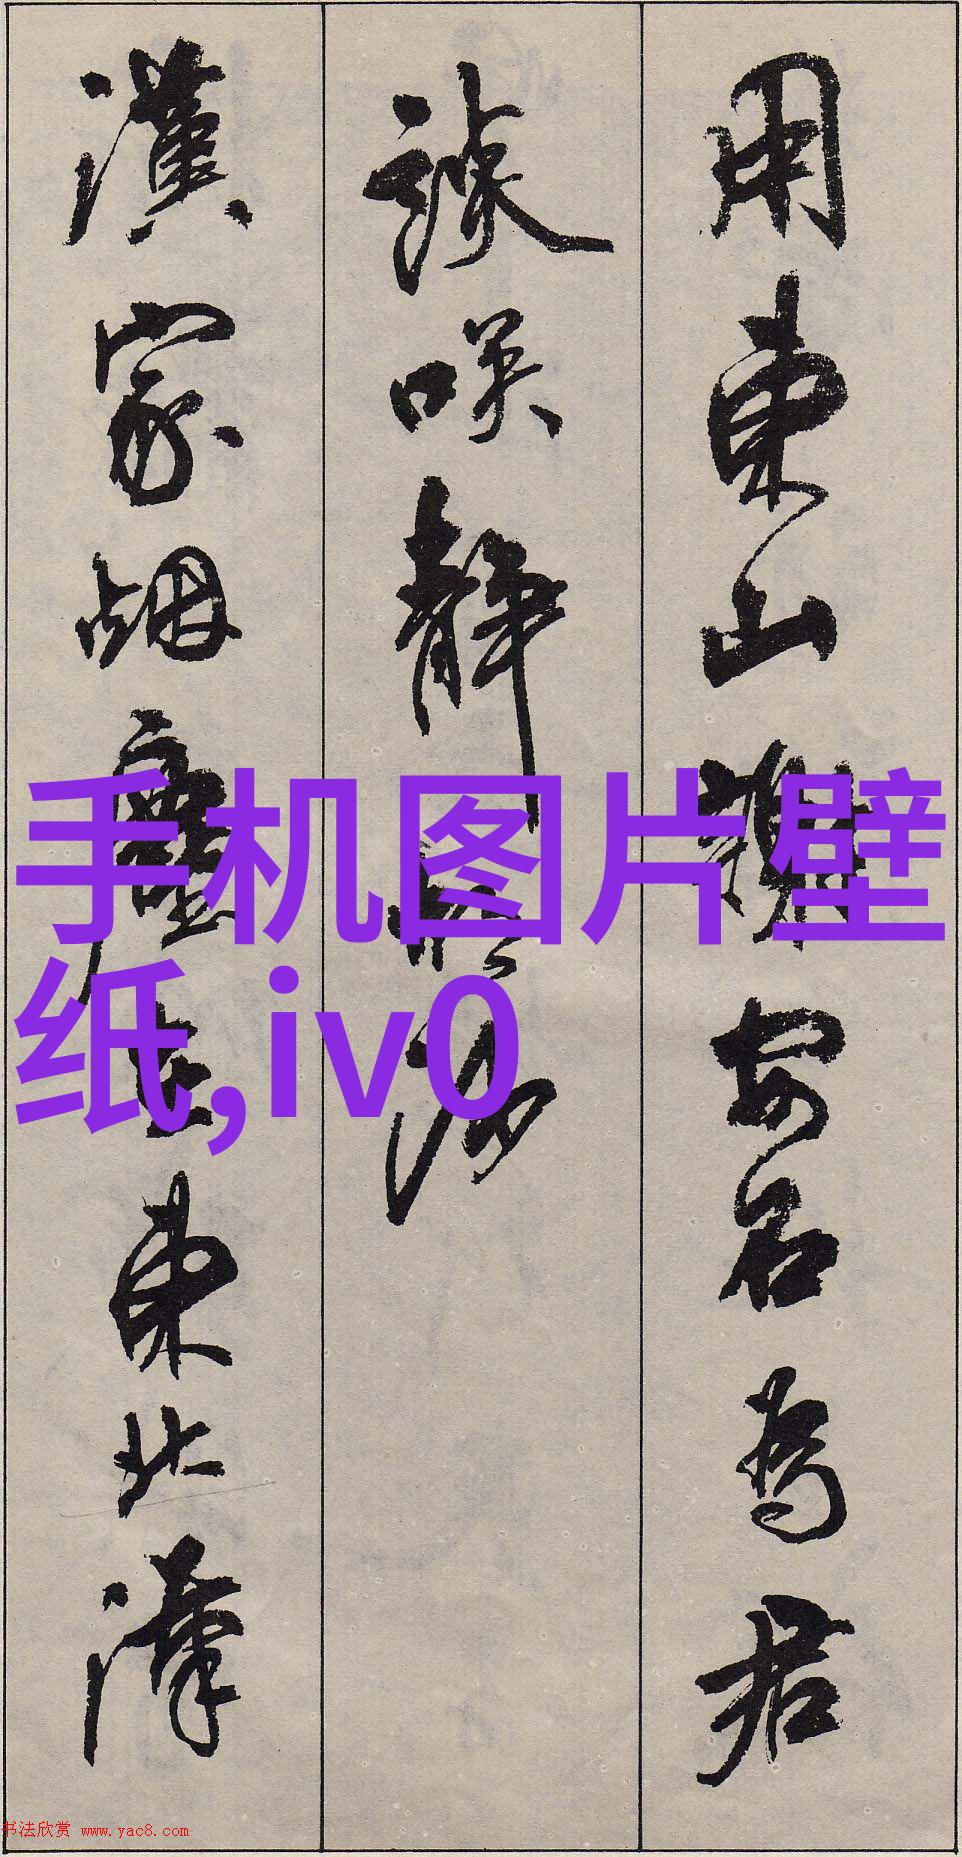 用東山謝安石為君
談咲靜胡沙
漢家烟塵在東北漢
手机图片壁
纸,iv0
书法欣赏 www.yac8.com